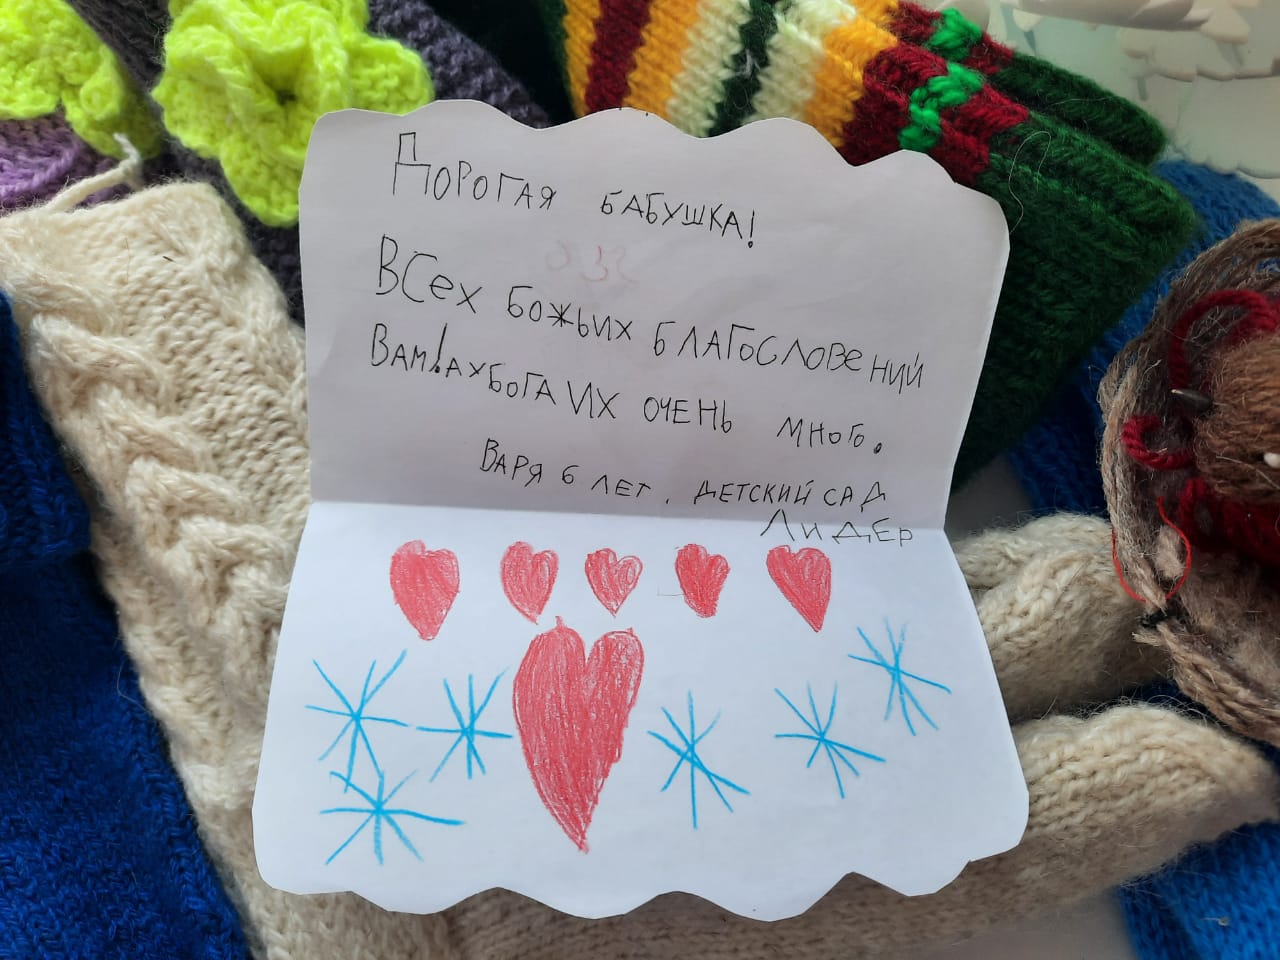 Дорогая бабушка!
Всех божьих благословений
Вам! А у бога их очень много.
Варя 6 лет. детский сад
Лидер